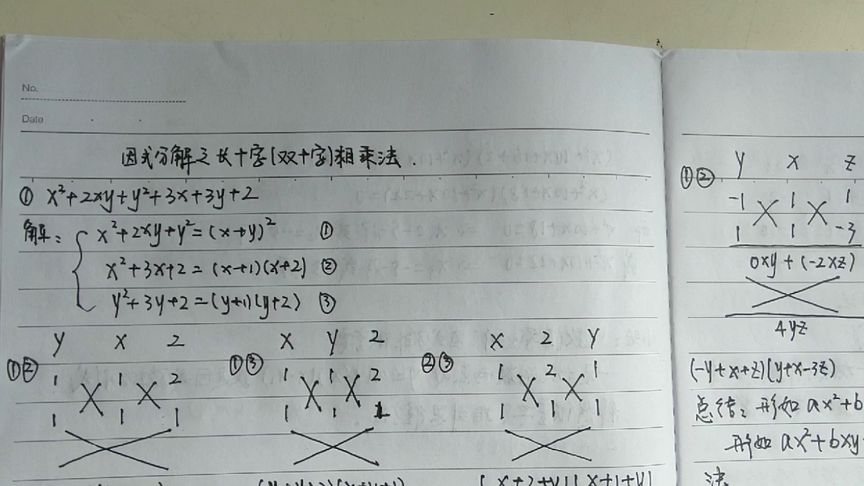 No.
Date
因式分解之长十字(双十字)相乘法.
① x²+2xy+y²+3x+3y+2
解: x²+2xy+y²=(x+y)² ①
x²+3x+2=(x+1)(x+2) ②
y²+3y+2=(y+1)(y+2) ③
y x 2
①② 1 1 2
1 1 1
x y 2
①③ 1 1 2
1 1 1
x 2 y
②③ 1 2 1
1 1 1
(x+2+y)(x+1+y)
y x z
①② -1 1 1
1 1 -3
0xy+(-2xz)
4yz
(-y+x+z)(y+x-3z)
总结: 形如ax²+b
形如ax²+bxy
法